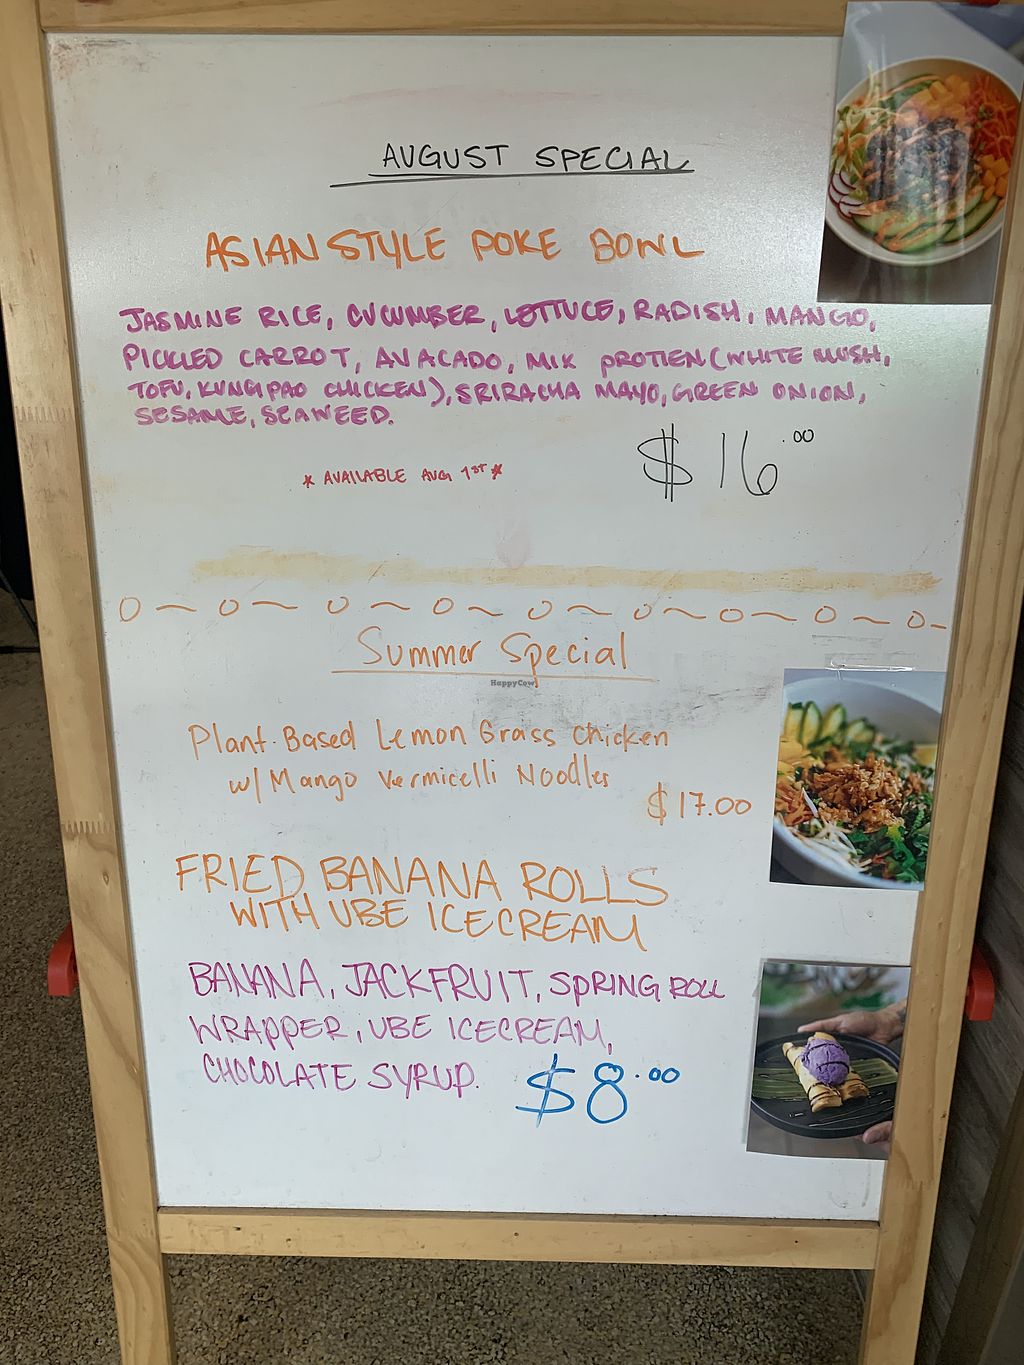 AUGUST SPECIAL
ASIAN STYLE POKE BOWL
JASMINE RICE, CUCUMBER, LETTUCE, RADISH, MANGO,
PICKLED CARROT, AVACADO, MIX PROTIEN (WHITE MUSH,
TOFU, KUNG PAO CHICKEN), SRIRACHA MAYO, GREEN ONION,
SESAME, SEAWEED.
$16.00
* AVAILABLE AUG 1ST *
Summer Special
HappyCow
Plant-Based Lemon Grass Chicken
w/ Mango Vermicelli Noodles
$17.00
FRIED BANANA ROLLS
WITH UBE ICECREAM
BANANA, JACKFRUIT, SPRING ROLL
WRAPPER, UBE ICECREAM,
CHOCOLATE SYRUP.
$8.00